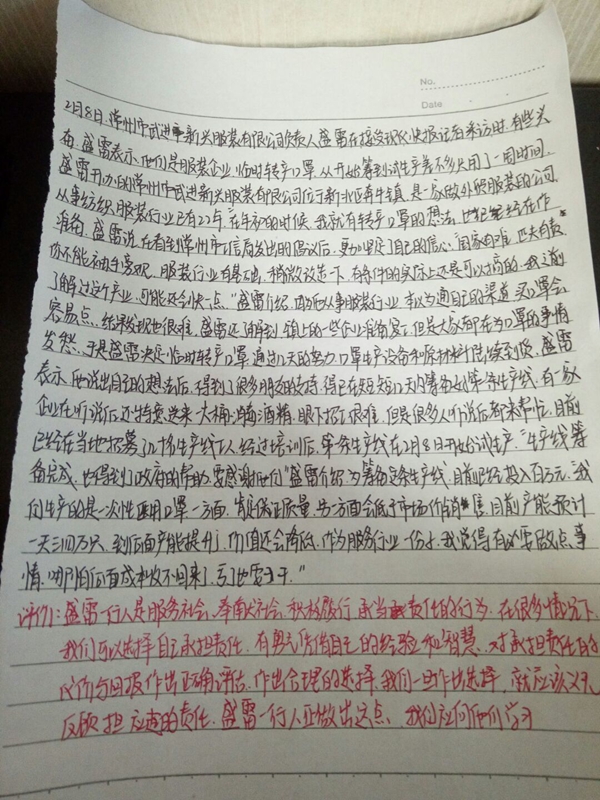 No.
Date
2月8日,常州市武进新兴服装有限公司负责人盛雷在接受现代快报记者采访时,有些兴
奋.盛雷表示,他们是服装企业,临时转产口罩,从开始筹到试生产差不多只用了一周时间.
盛雷开办的常州市武进新兴服装有限公司位于新北区奔牛镇,是一家做外贸服装的公司
从事纺织服装行业已有22年."在年初的时候,我就有转产口罩的想法,也已经在作
准备.盛雷说,在看到常州市工信局发出的倡议后,更加坚定了自己的信心."国家有难,匹夫有责.
你不能袖手旁观.服装行业有基础,稍微改造一下,有条件的实际上还是可以搞的.我之前
了解过这个产业,可能还会快一点."盛雷介绍,因为从事服装行业,本以为通自己的渠道买口罩会
容易点,结果发现也很难.盛雷还了解到,镇上的一些企业准备复工,但是大家都在为口罩的事情
发愁.于是盛雷决定临时转产口罩,通过几天的努力,口罩生产设备和原材料陆续到货.盛雷
表示,他说出自己的想法后,得到了很多朋友的支持,得已在短短几天内筹备好第一条生产线,有一家
企业在听说后,还特意送来一大桶消毒酒精.眼下招工很难,但是很多人听说后都来帮忙.目前
已经在当地招募了几十名生产线工人.经过培训后,第一条生产线在2月8日开始试生产."生产线筹
备完成,也得到了政府的帮助,要感谢他们"盛雷介绍,为筹备这条生产线,目前已经投入百万元."我
们生产的是一次性医用口罩,一方面,肯定保证质量,另一方面会低于市场价销售,目前产能预计
一天三四万只,到后面产能提升了,价值还会降低.作为服务行业一份子,我觉得有必要做点事
情,哪怕后面成本收不回来了,亏也要干."
评价:盛雷一行人是服务社会、奉献社会、积极履行承当责任的行为.在很多情况下,
我们可以选择自己承担责任,有勇气凭借自己的经验和智慧,对承担责任的
代价与回报作出正确评估,作出合理的选择.我们一旦作出选择,就应该义无
反顾担应当的责任.盛雷一行人正做出这点,我们应向他们学习